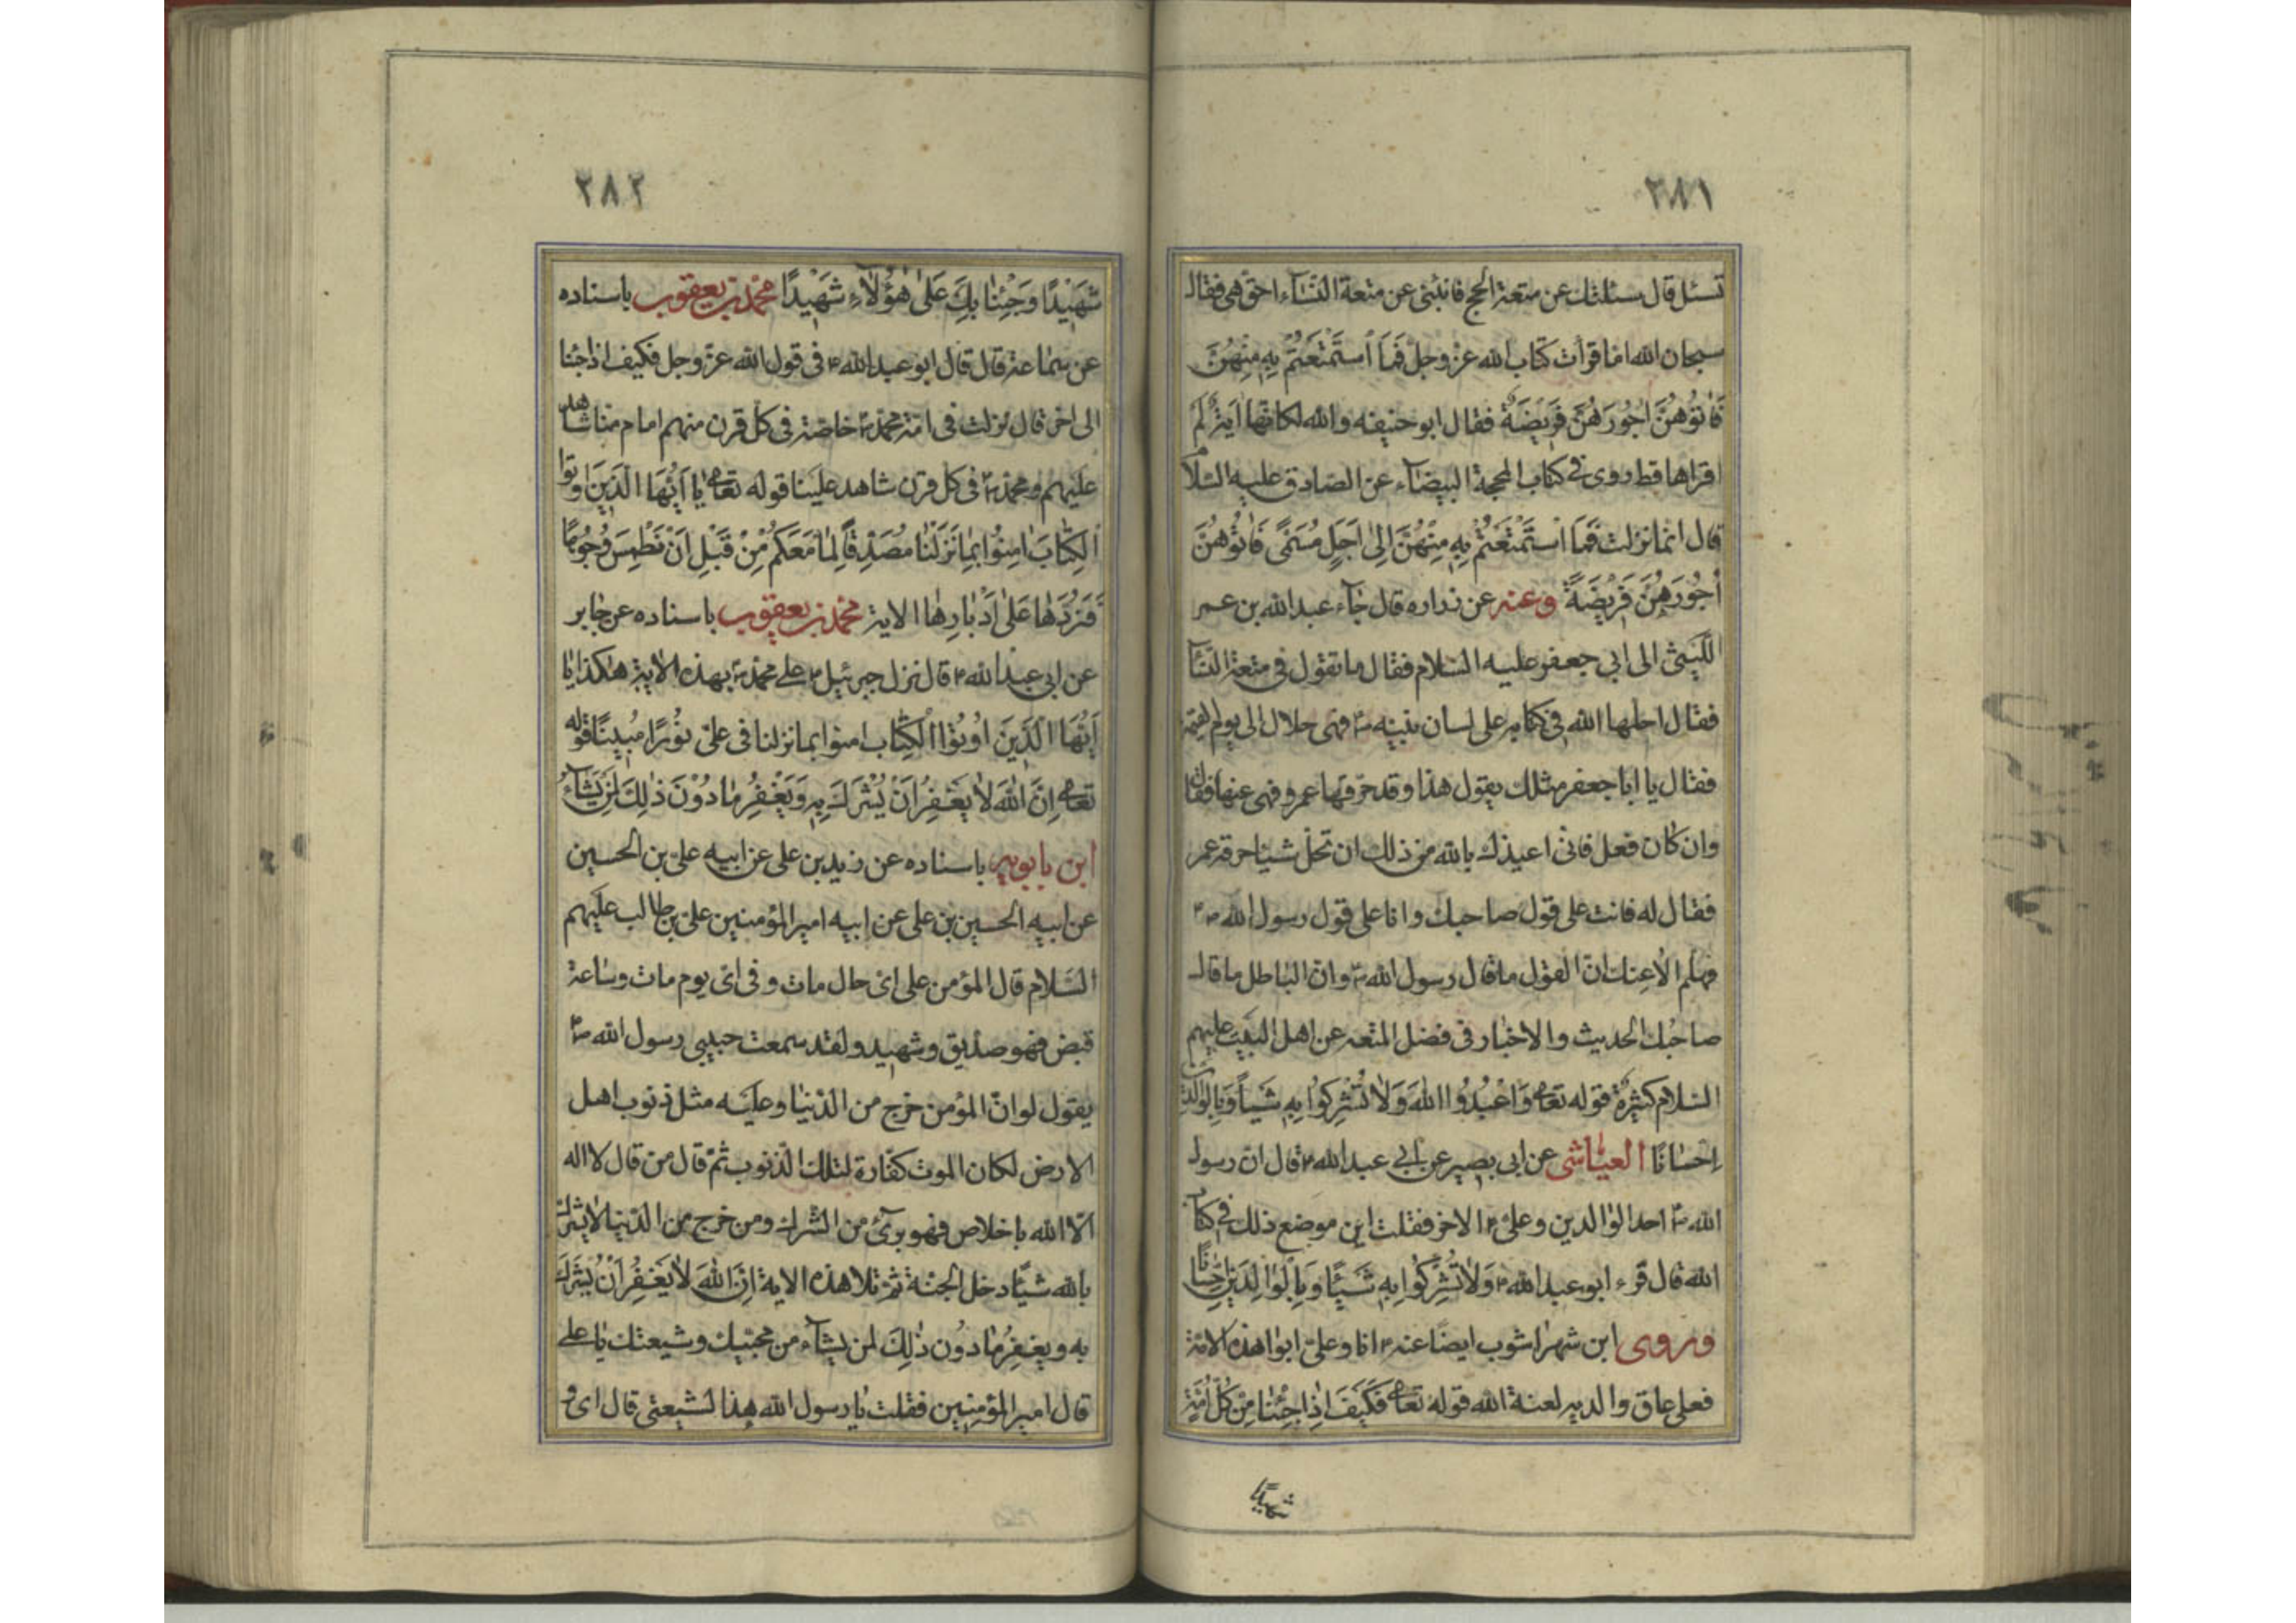 ٢٨١
تسئل قال سئلتك عن متعة الحج فانبئنى عن متعة النسآء احق هى فقال
سبحان الله اما قرات كتاب الله عز وجل فَمَا اسْتَمْتَعْتُمْ بِهِ مِنْهُنَّ
فَاٰتُوْهُنَّ اُجُورَهُنَّ فَرِيْضَةً فقال ابو حنيفه والله لكانها اية لم
اقراها قط روى فى كتاب المحجة البيضآء عن الصادق عليه السلام
قال انما نزلت فَمَا اسْتَمْتَعْتُمْ بِهِ مِنْهُنَّ اِلىٰ اَجَلٍ مُسَمًّى فَاٰتُوْهُنَّ
اُجُورَهُنَّ فَرِيْضَةً وعنه عن زراره قال جآء عبدالله بن عمر
اللَّيثى الى ابي جعفر عليه السلام فقال ما تقول فى متعة النسآ
فقال احلها الله فى كتابه على لسان نبيه ص فهى حلال الى يوم القيمة
فقال يا ابا جعفر مثلك يقول هذا وقد حرّمها عمر ونهى عنها فقال
وان كان فعل فانى اعيذك بالله من ذلك ان تحلّ شيئا حرمه عمر
فقال له فانت على قول صاحبك وانا على قول رسول الله ص
فهلم الاعنك انّ القول ما قال رسول الله ص وان الباطل ما قال
صاحبك الحديث والاخبار فى فضل المتعه عن اهل البيت عليهم
السلام كثيرة قوله تعالى وَاعْبُدُوا اللهَ وَلاٰ تُشْرِكُوا بِهِ شَيْئاً وَبِالْوَالِدَيْنِ
اِحْسَانًا العياشى عن ابى بصير عن ابي عبدالله ع قال ان رسول
الله ص احد الوالدين وعلى ع الاخر فقلت اين موضع ذلك فى كتاب
الله قال قرء ابو عبدالله ع وَلاٰ تُشْرِكُوا بِهِ شَيْئًا وَبِالْوَالِدَيْنِ اِحْسَانًا
وروى ابن شهراشوب ايضًا عنه ع انا وعلىّ ابوا هذه الامّة
فعلى عاق والديه لعنة الله قوله تعالى فَكَيْفَ اِذٰا جِئْنٰا مِنْ كُلِّ اُمَّةٍ
شهيدًا
٢٨٢
شَهِيْدًا وَجِئْنٰا بِكَ عَلىٰ هٰؤُلاٰءِ شَهِيْدًا محمد بن يعقوب باسناده
عن سماعة قال قال ابو عبدالله ع فى قول الله عز وجل فكيف اذا جئنا
الى اخره قال نزلت فى امة محمد ص خاصّة فى كل قرن منهم امام منا شاهد
عليهم ومحمد ص فى كل قرن شاهد علينا قوله تعالى يٰا اَيُّهَا الَّذِيْنَ اُوتُوا
الْكِتٰابَ اٰمِنُوْا بِمٰا نَزَّلْنٰا مُصَدِّقًا لِمٰا مَعَكُمْ مِنْ قَبْلِ اَنْ نَطْمِسَ وُجُوهًا
فَنَرُدَّهٰا عَلىٰ اَدْبٰارِهٰا الاية محمد بن يعقوب باسناده عن جابر
عن ابى عبدالله ع قال نزل جبرئيل ع على محمد ص بهذه الاية هٰكذا يٰا
اَيُّهَا الَّذِيْنَ اُوْتُوْا الْكِتٰاب امنوا بما نزلنا فى علىّ نُوْرًا مُبِيْنًا قوله
تعالى اِنَّ اللهَ لاٰ يَغْفِرُ اَنْ يُشْرَكَ بِهِ وَيَغْفِرُ مٰا دُوْنَ ذٰلِكَ لِمَنْ يَشٰآءُ
ابن بابويه باسناده عن زيد بن على عن ابيه على بن الحسين
عن ابيه الحسين بن على عن ابيه امير المؤمنين على بن ابى طالب عليهم
السَّلام قال المؤمن على اىّ حال مات وفى اىّ يوم مات وساعة
قبض فهو صدّيق وشهيد ولقد سمعت حبيبى رسول الله ص
يقول لو انّ المؤمن خرج من الدّنيا وعليه مثل ذنوب اهل
الارض لكان الموت كفّارة لتلك الذنوب ثمّ قال من قال لا اله
الّا الله باخلاص فهو برىٓء من الشرك ومن خرج من الدّنيا لا يشرك
بالله شيئًا دخل الجنة ثم تلا هذه الاية اِنَّ اللهَ لاٰ يَغْفِرُ اَنْ يُشْرَكَ
به ويغفِرُ مٰا دُون ذٰلِكَ لمن يشآء من محبّيك وشيعتك يا على
قال امير المؤمنين فقلت يا رسول الله هذا لشيعتى قال اى و